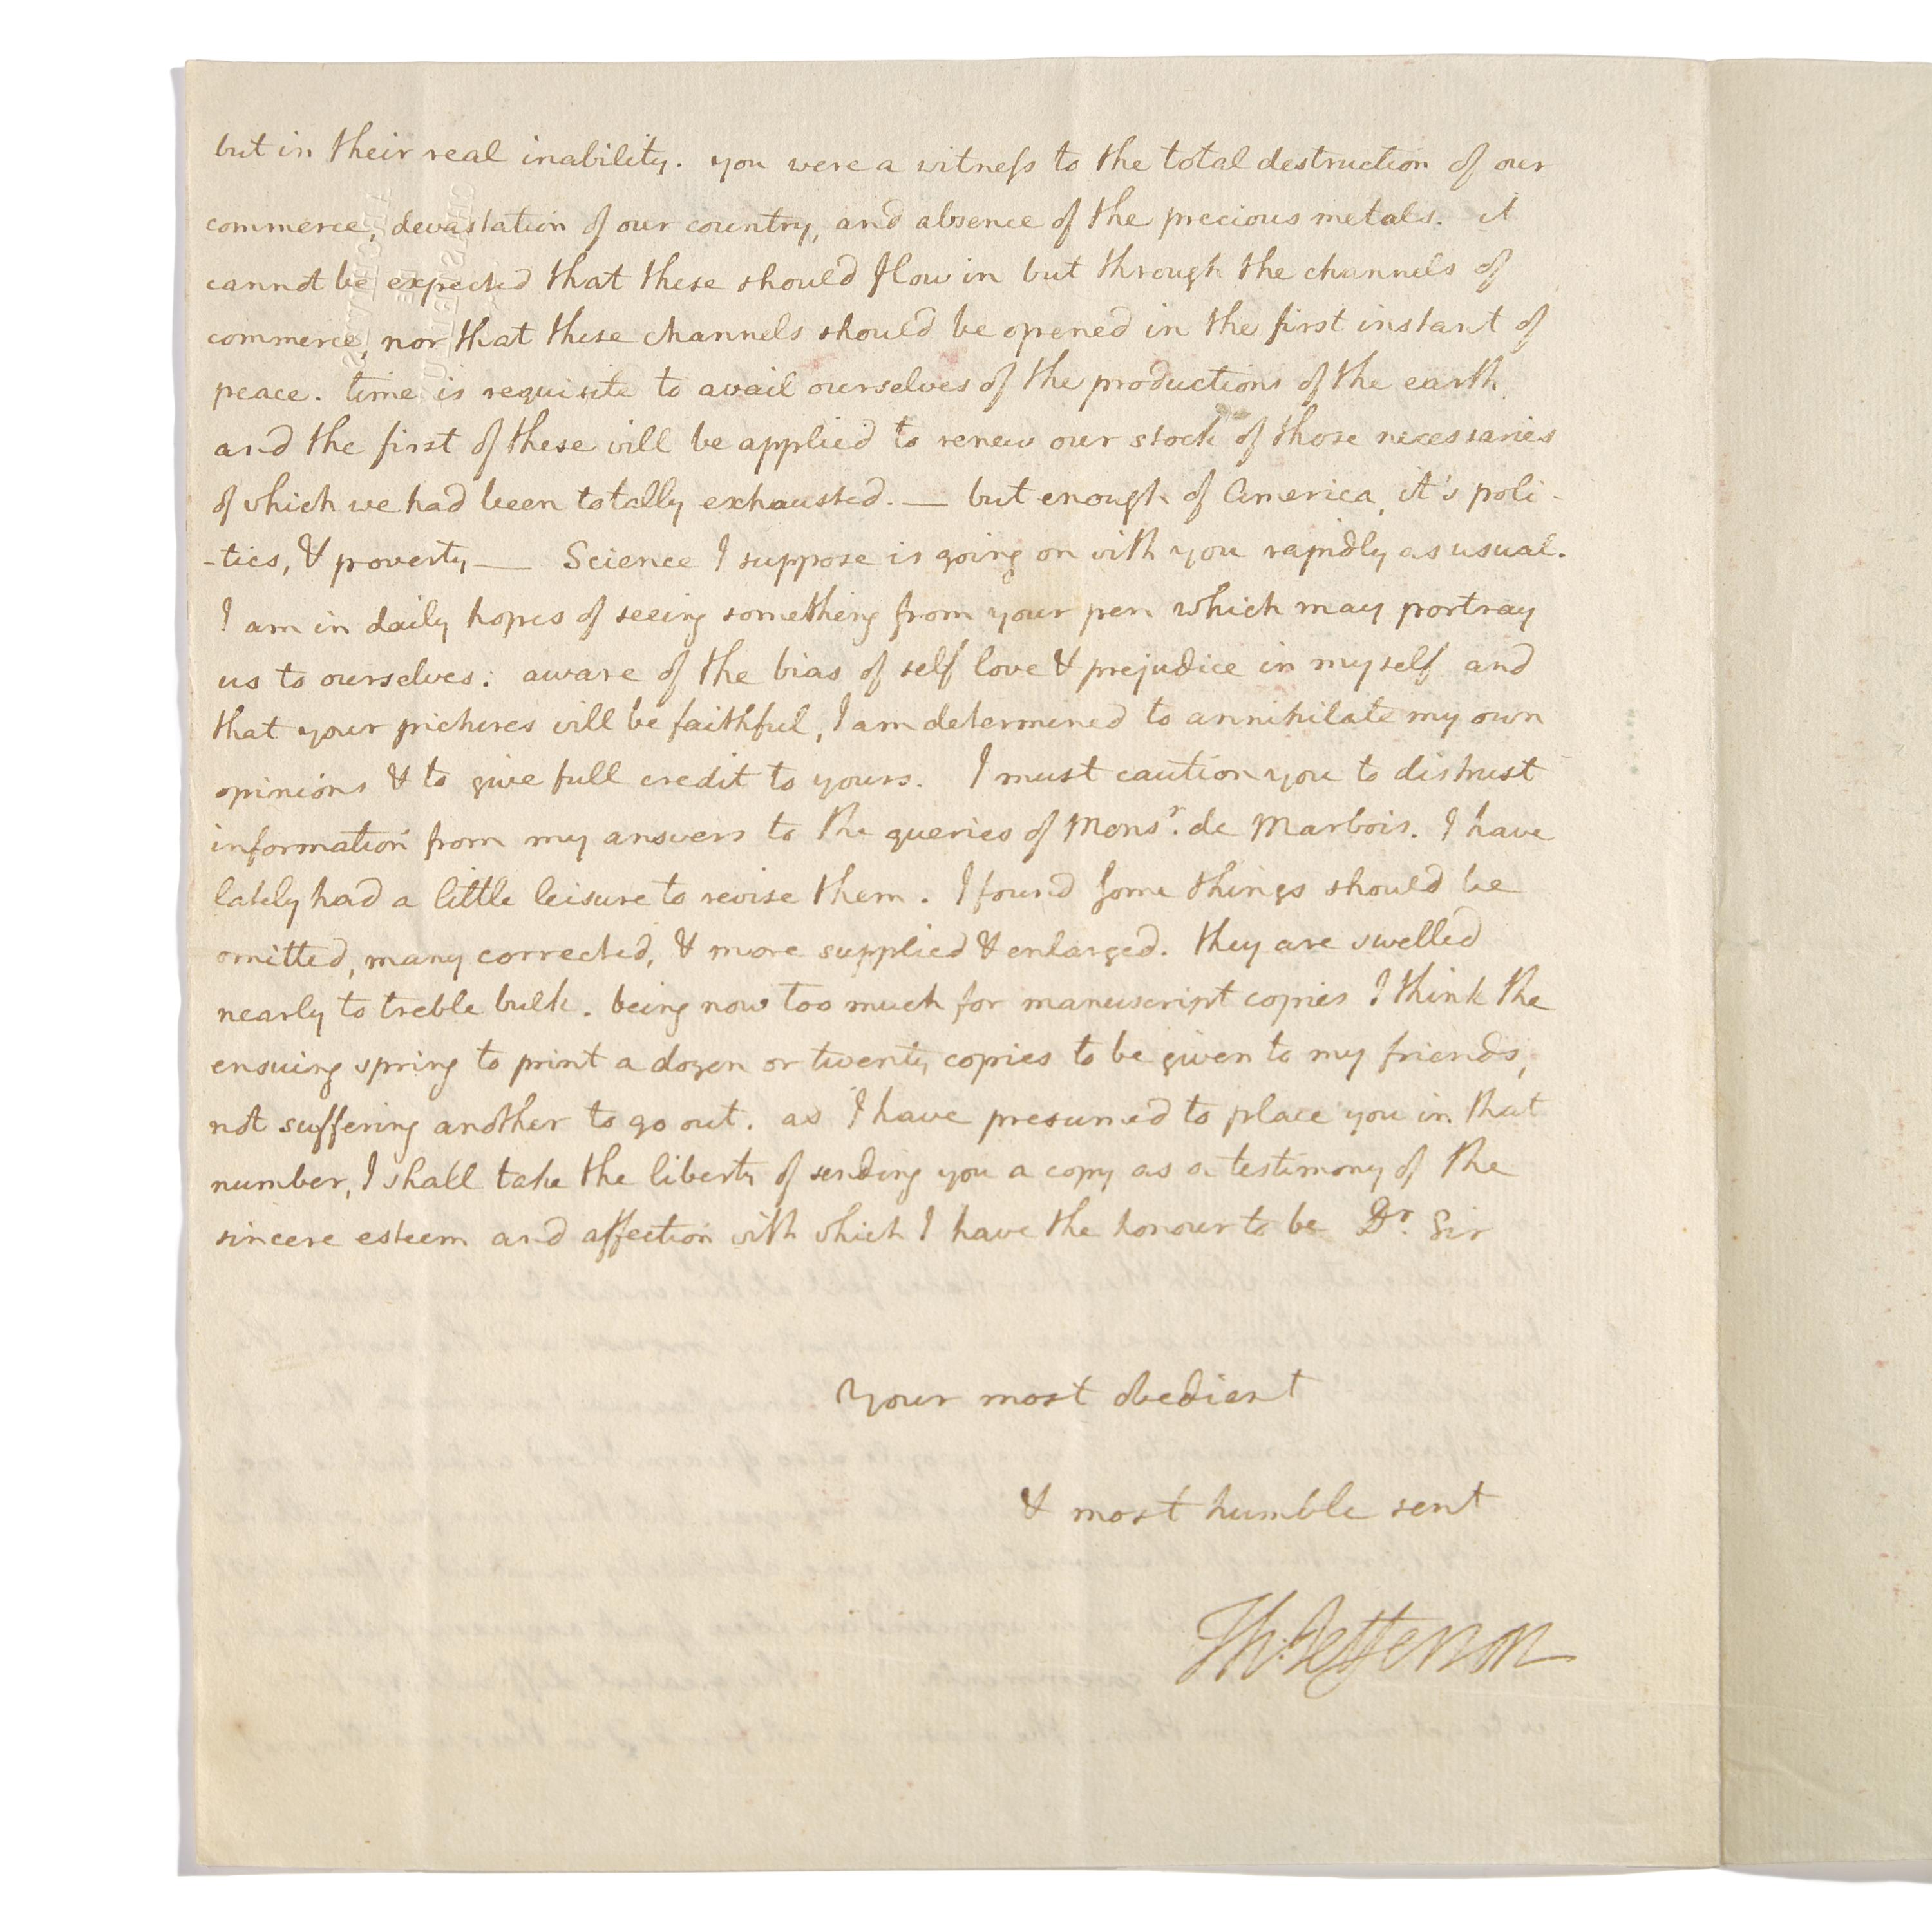 but in their real inability. you were a witness to the total destruction of our
commerce, devastation of our country, and absence of the precious metals. it
cannot be expected that these should flow in but through the channels of
commerce, nor that these channels should be opened in the first instant of
peace. time is requisite to avail ourselves of the productions of the earth,
and the first of these will be applied to renew our stock of those necessaries
of which we had been totally exhausted. — but enough of America, it's poli-
-tics, & poverty — Science I suppose is going on with you rapidly as usual.
I am in daily hopes of seeing something from your pen which may portray
us to ourselves. aware of the bias of self love & prejudice in myself and
that your pictures will be faithful, I am determined to annihilate my own
opinions & to give full credit to yours. I must caution you to distrust
information from my answers to the queries of Monsr. de Marbois. I have
lately had a little leisure to revise them. I found some things should be
omitted, many corrected, & more supplied & enlarged. they are swelled
nearly to treble bulk. being now too much for manuscript copies I think the
ensuing spring to print a dozen or twenty copies to be given to my friends,
not suffering another to go out. as I have presumed to place you in that
number, I shall take the liberty of sending you a copy as a testimony of the
sincere esteem and affection with which I have the honour to be Dr. Sir
Your most obedient
& most humble servt
Th: Jefferson